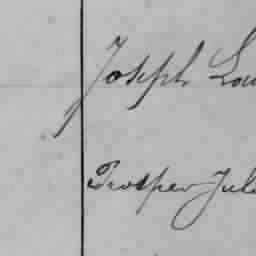 Joseph Lou
Prosper Jule